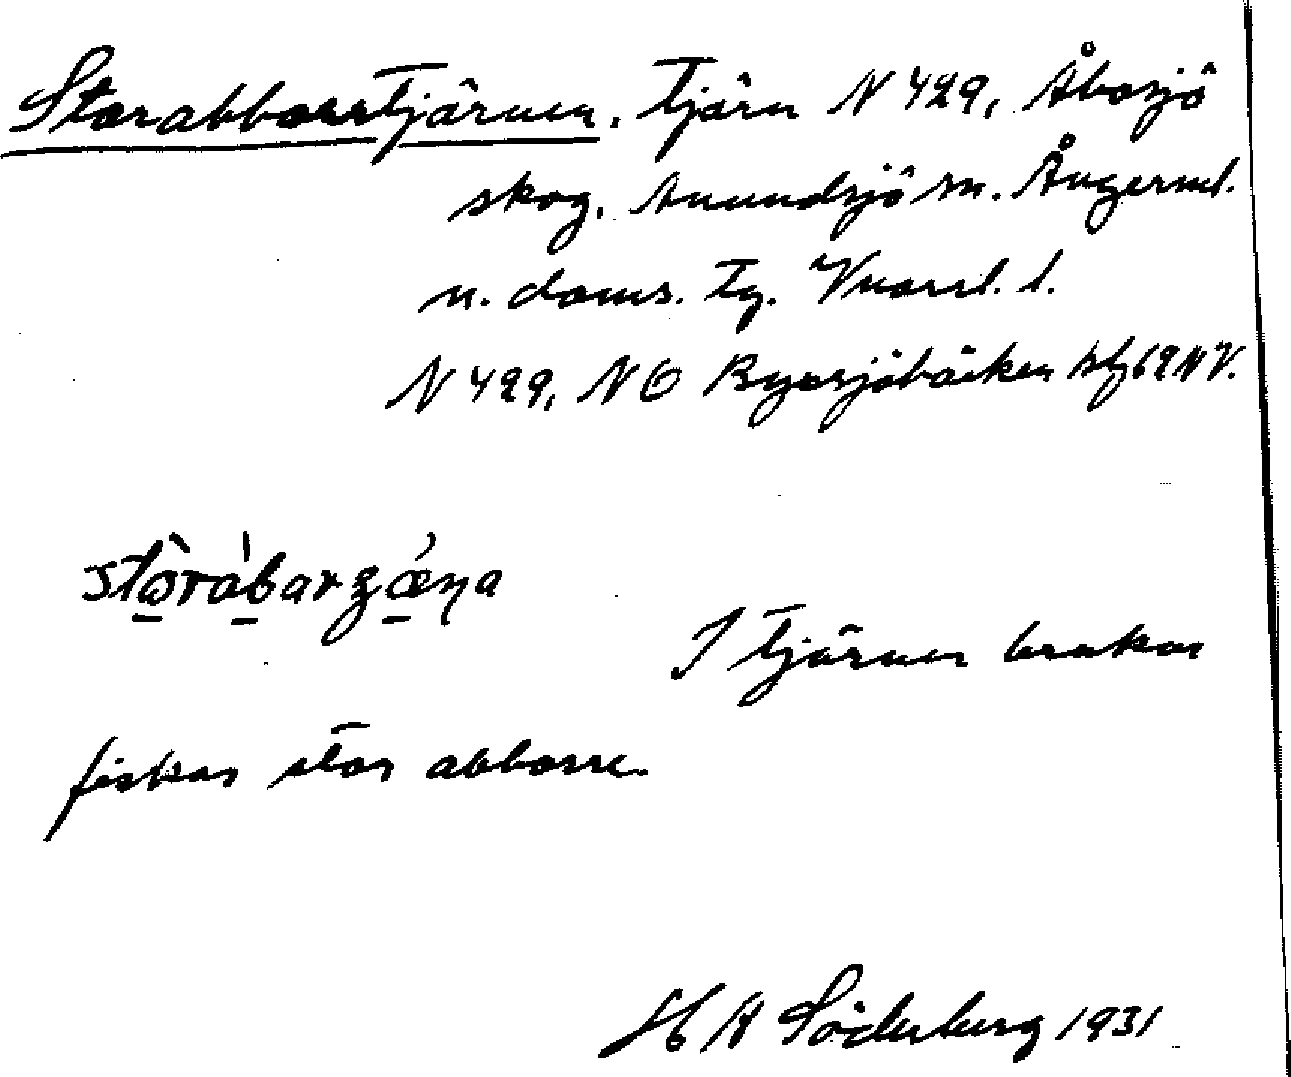 Storabborrtjärnen. tjärn N 429, Åbosjö
skog. Anundsjö sn. Ångerml.
n. doms. tg.
N 429, NO Byosjöbäcken bf 62 NV.
I tjärnen brukar
fiskas stor abborre.
H A Söderberg 1931